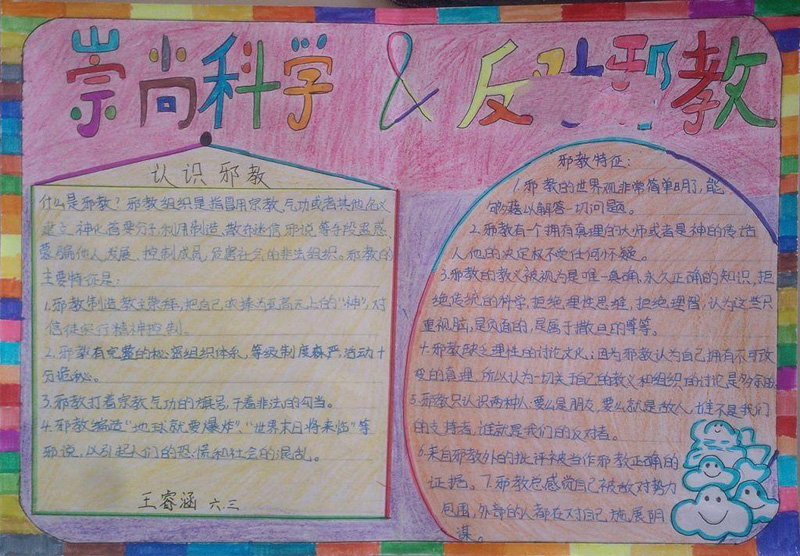 崇尚科学 & 反对邪教
认识邪教
什么是邪教？邪教组织是指冒用宗教、气功或者其他名义
建立、神化首要分子，利用制造、散布迷信邪说等手段蛊惑、
蒙骗他人，发展、控制成员，危害社会的非法组织。邪教的
主要特征是：
1.邪教制造教主崇拜，把自己 为至高无上的“神”，对
信徒实行精神控制。
2.邪教有完整的秘密组织体系，等级制度森严，活动十
分诡秘。
3.邪教打着宗教、气功的旗号，干着非法的勾当。
4.邪教编造“地球就要爆炸”、“世界末日将来临”等
邪说，以引起人们的恐慌和社会的混乱。
王睿涵 六.三
邪教特征：
1.邪教的世界观非常简单明了，能
够藉以解答一切问题。
2.邪教有个拥有真理的大师或者是神的传道
人，他的决定权不受任何怀疑。
3.邪教的教义被视为是唯一真确，永久正确的知识，拒
绝传统的科学，拒绝理性思维，拒绝理智，认为这些只
重视脑，是负面的，是属于撒旦的等等。
4.邪教缺乏理性的讨论文化，因为邪教认为自己拥有不可改
变的真理，所以认为一切关于自己的教义和组织的讨论是多余的。
5.邪教只认识两种人：要么是朋友，要么就是敌人，谁不是我们
的支持者，谁就是我们的反对者。
6.来自邪教外的批评被当作邪教正确的
证据。7.邪教总感觉自己被敌对势力
包围，外部的人都在对自己施展阴
谋。